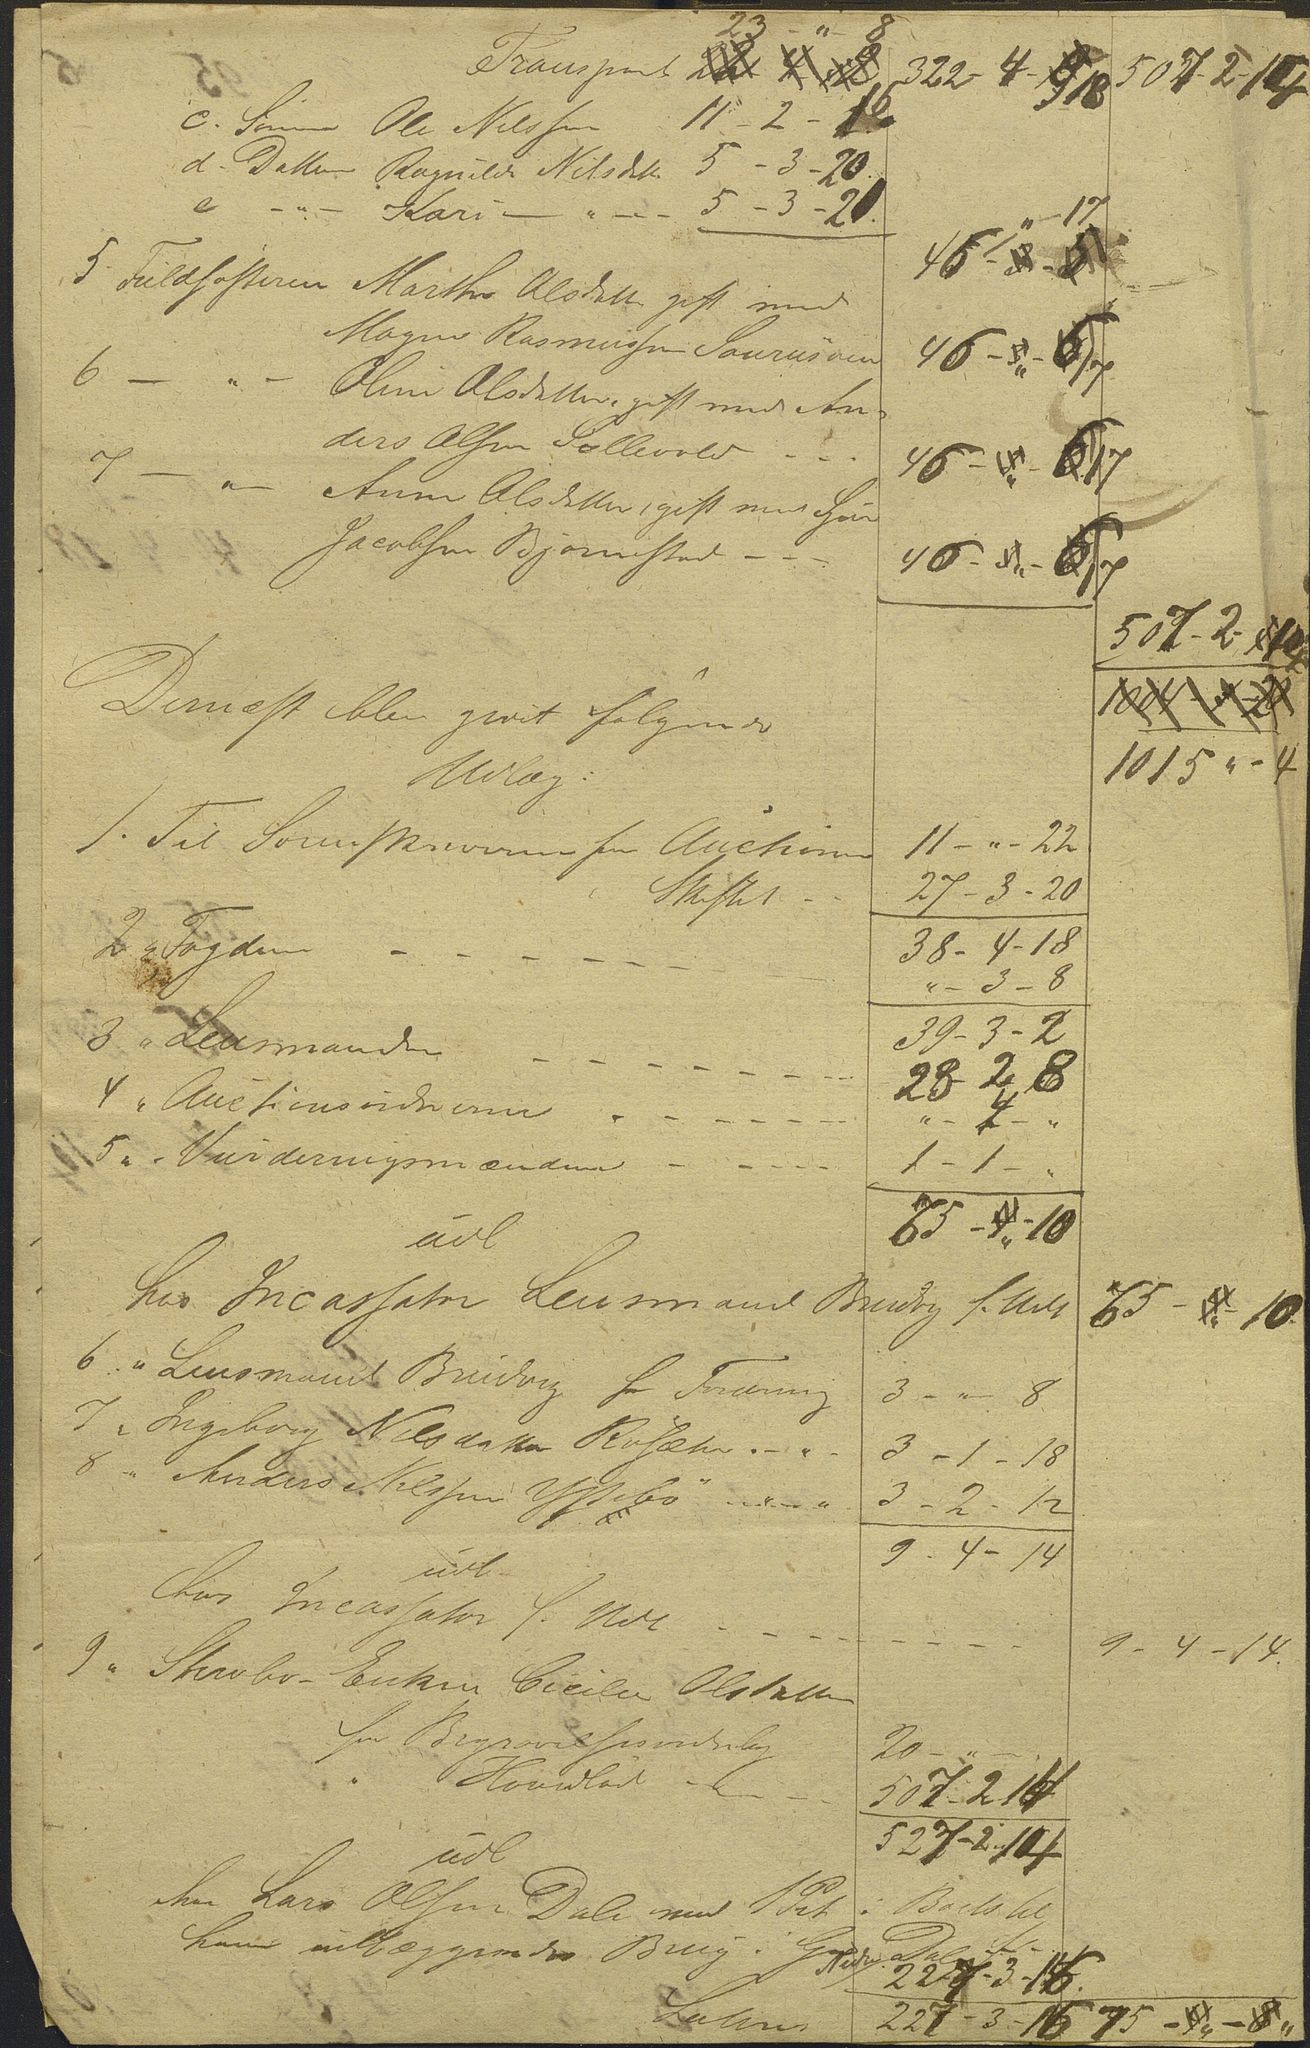 23 - " - 8
Transport 322 - 4 - 18 507 - 2 - 14
c. Sønnen Ole Nilssen 11 - 2 - 16
d - Datteren Ragnilde Nilsdatter 5 - 3 - 20
e - " - Kari - " - 5 - 3 - 20
46 - " - 17
5 Fuldsøsteren Martha Olsdatter gift med
Mogens Rasmussen 46 - " - 17
6 - " - Oline Olsdatter, gift med An-
ders Olsen Sellevold - - - 46 - " - 17
7 - " - Anne Olsdatter, gift med
Jacobsen Bjørnestad - - - 46 - " - 17
507 - 2 - 14
1015 " - 4
Dernæst blev giort følgende
Udlæg:
1. Til Sorenskriveren for Auctionen 11 - " - 22
Skiftet - - 27 - 3 - 20
38 - 4 - 18
2 " Fogden - - - - - - " - 3 - 8
39 - 3 - 2
3 " Lensmanden - - - - - - 28 - 2 - 8
4 " Auctionsvidnerne - - - - - " - 4 - "
5 " Vurderingsmændene - - - - 1 - 1 - "
65 - " - 10
udl
hos Incassator Lensmand Breivig f. Udl 65 - " - 10
6 " Lensmand Breidvig for Fordring 3 - " - 8
7 " Ingeborg Nilsdatter - " - 3 - 1 - 18
8 " Anders Nilssen - " - " 3 - 2 - 12
9 - 4 - 14
udl
hos Incassator f. Udl - - - - - - 9 - 4 - 14.
9 " Stervbo-Enken Cicilie Olsdatter
for Begravelsesudlæg 20 - " -
" Hovedlod - - - 507 - 2 14
527 - 2 - 14
udl
hos Lars Olsen Dale med Pret i Boels til
ham udlæggende Brug i Gden Nedre Dale
227 - 3 - 16
Latus 227 - 3 - 16 75 - " - "